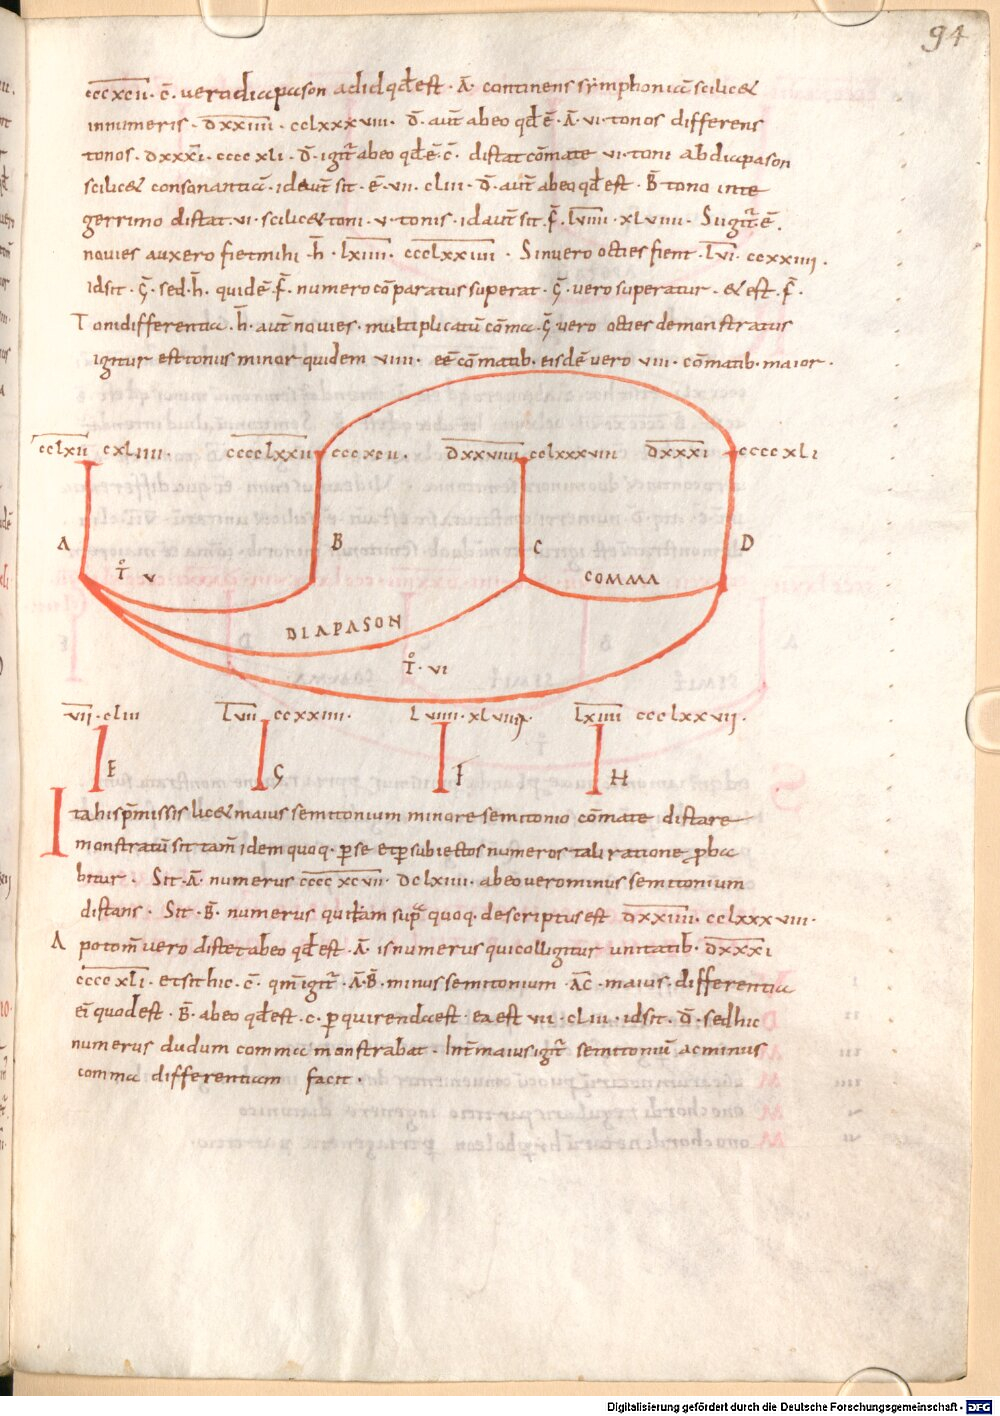 94
cccxcii · c̄ · vero diapason ad id qđ est · Ā · continens symphoniā scilicet
in numeris · dxxiiii · cclxxxviii · D̄ · aut̄ ab eo qđ ē · Ā · vi · tonos differens
tonos · dxxxi · cccc xli · D̄ · igit̄ ab eo qđ ē · c̄ · distat cōmate vi · toni ab diapason
scilicet consonantia · id aut̄ sit · Ē · vii · cliii · D̄ · aut̄ ab eo qđ est · B̄ tono inte
gerrimo distat · vi · scilicet toni · v · tonis · id aut̄ sit · F̄ · lviiii · xlviiii · Si igit̄ · ē ·
novies auxero fiet mihi · h̄ · lxiiii · ccclxxiiii · Sin vero octies fient · lvi · ccxxiiii ·
id sit · Ḡ · sed · h̄ · quidē · F̄ · numero cōparatus superat · Ḡ · vero superatur · & est · F̄ ·
Toni differentia · h̄ · aut̄ novies · multiplicatū cōma · Ḡ vero octies demonstratus
igitur est tonus minor quidem viiii · eē cōmatib · eisdē vero viii · cōmatib · maior ·
cclxii cxliiii ·
cccclxxii cccxcii ·
dxxviiii cclxxxviii
dxxxi cccc xli
A
B
C
D
T̊ v
COMMA
DIAPASON
T̊ · vi
vii · cliii
lvii ccxxiiii ·
lviiii · xlviiii ·
lxiiii ccclxxvii ·
E
G
F
H
Ita his p̄missis licet maius semitonium minore semitonio cōmate distare
monstratū sit tam̄ idem quoq · per se et per subiectos numeros tali ratione proba
bitur · Sit · Ā · numerus cccc xcvii · dclxiiii · ab eo vero minus semitonium
distans · Sit · B̄ · numerus qui etiam supra quoq · descriptus est dxxiiii · cclxxxviii ·
Apotom̄ vero distet ab eo qđ est · Ā · is numerus qui colligitur unitatib · dxxxi
cccc xli · et sit hic · c̄ · qm̄ igit̄ · Ā · B̄ · minus semitonium · ĀC · maius · differentia
ei quod est · B̄ · ab eo qđ est · c · perquirenda est · ea est vii · cliii · id sit · D̄ · sed hic
numerus dudum comma monstrabat · Int̄ maius igit̄ semitoniū ac minus
comma differentiam facit ·
Digitalisierung gefördert durch die Deutsche Forschungsgemeinschaft - DFG